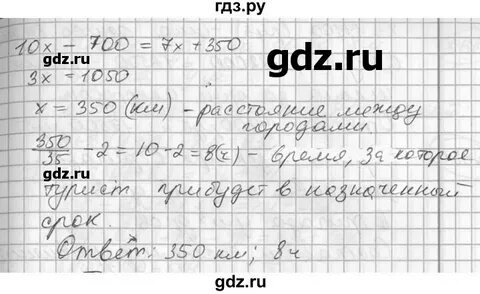 гдз.ру
10x - 700 = 7x + 350
gdz.ru
3x = 1050
x = 350 (км) - расстояние между
городами.
350/35 - 2 = 10 - 2 = 8(ч) - время, за которое
gdz.ru
турист прибудет в назначенный
срок.
Ответ: 350 км; 8ч
gdz.ru
gdz.ru